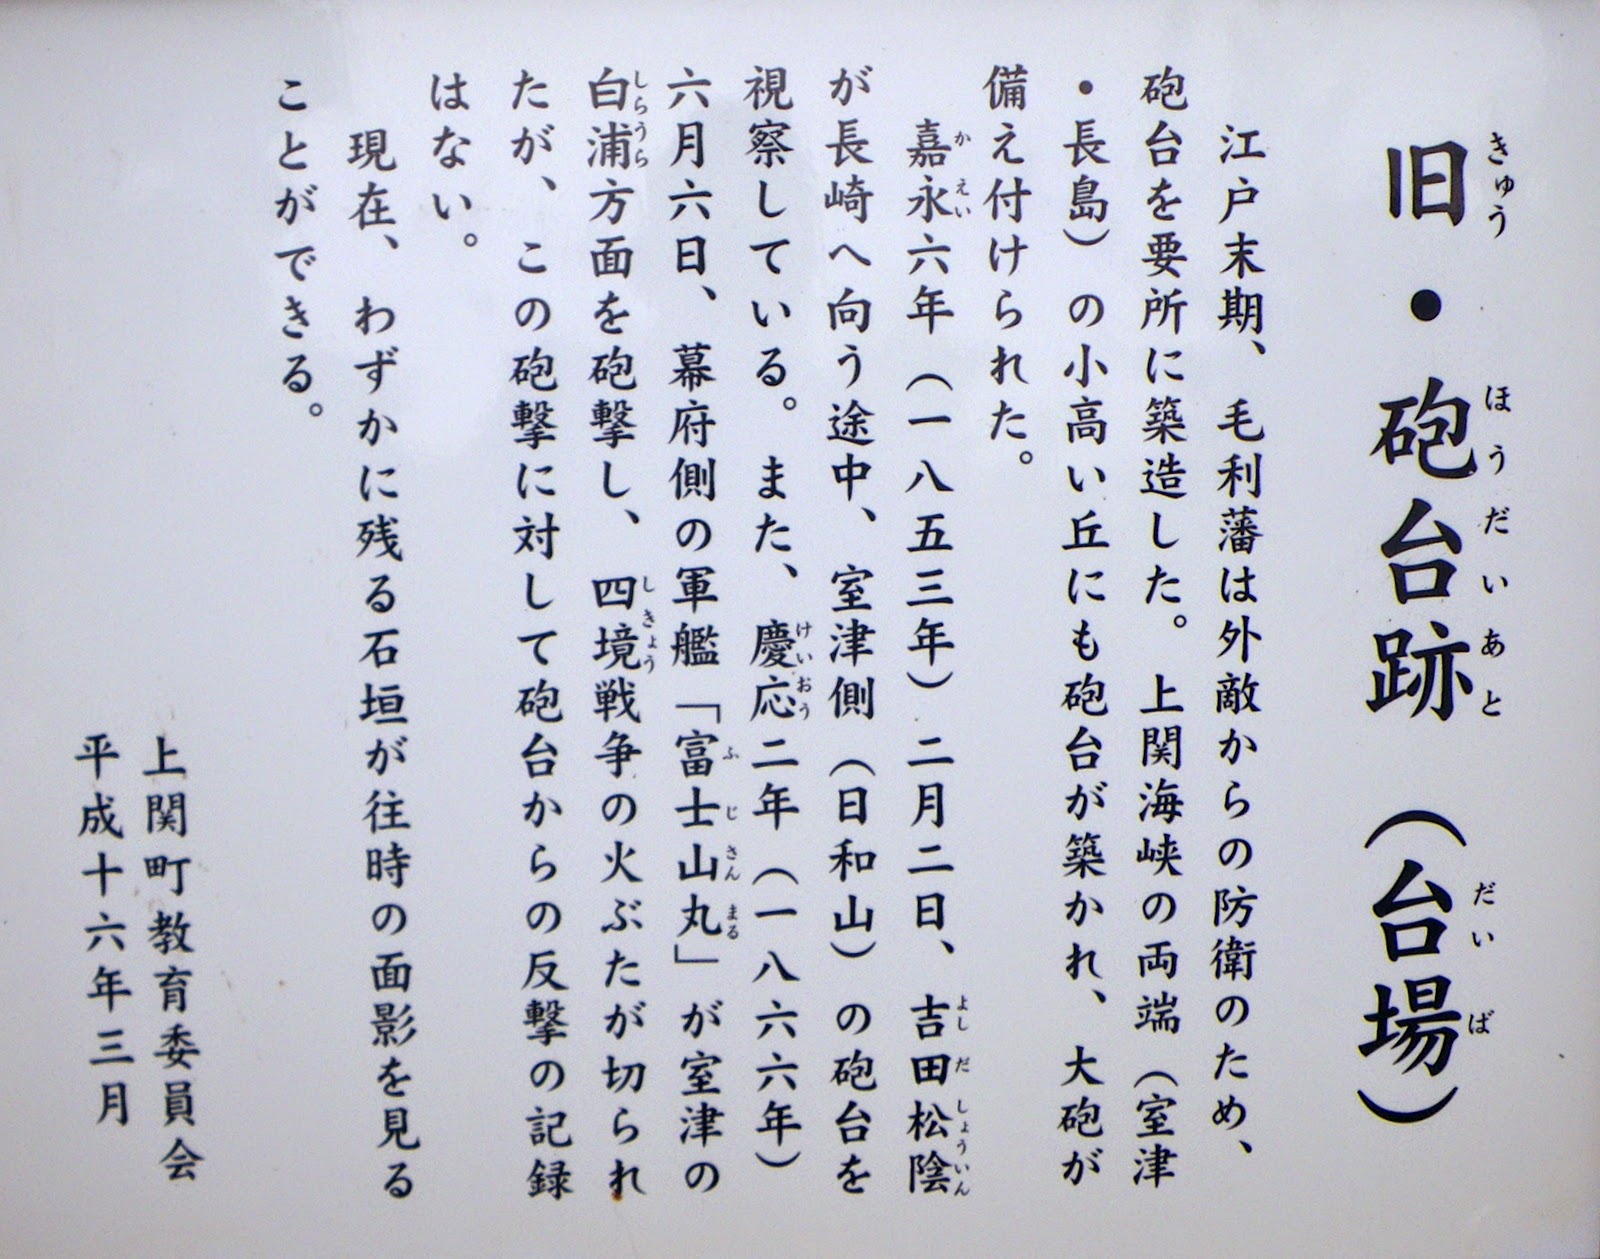 旧・砲台跡（台場）
江戸末期、毛利藩は外敵からの防衛のため、
砲台を要所に築造した。上関海峡の両端（室津
・長島）の小高い丘にも砲台が築かれ、大砲が
備え付けられた。
嘉永六年（一八五三年）二月二日、吉田松陰
が長崎へ向う途中、室津側（日和山）の砲台を
視察している。また、慶応二年（一八六六年）
六月六日、幕府側の軍艦「富士山丸」が室津の
白浦方面を砲撃し、四境戦争の火ぶたが切られ
たが、この砲撃に対して砲台からの反撃の記録
はない。
現在、わずかに残る石垣が往時の面影を見る
ことができる。
上関町教育委員会
平成十六年三月
きゅう ほうだいあと だいば
かえい
よしだしょういん
けいおう
ふじさんまる
しらうら
しきょう